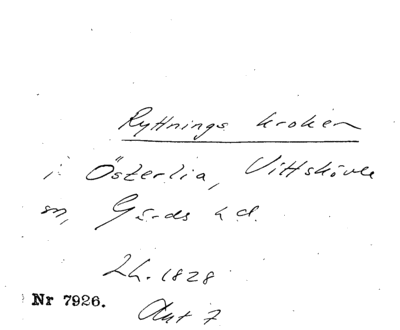 Ryttnings kroken
i Österlia, Vittskövle
sn, Gärds hd.
Lh. 1828
Nr 7926.
Akt 7